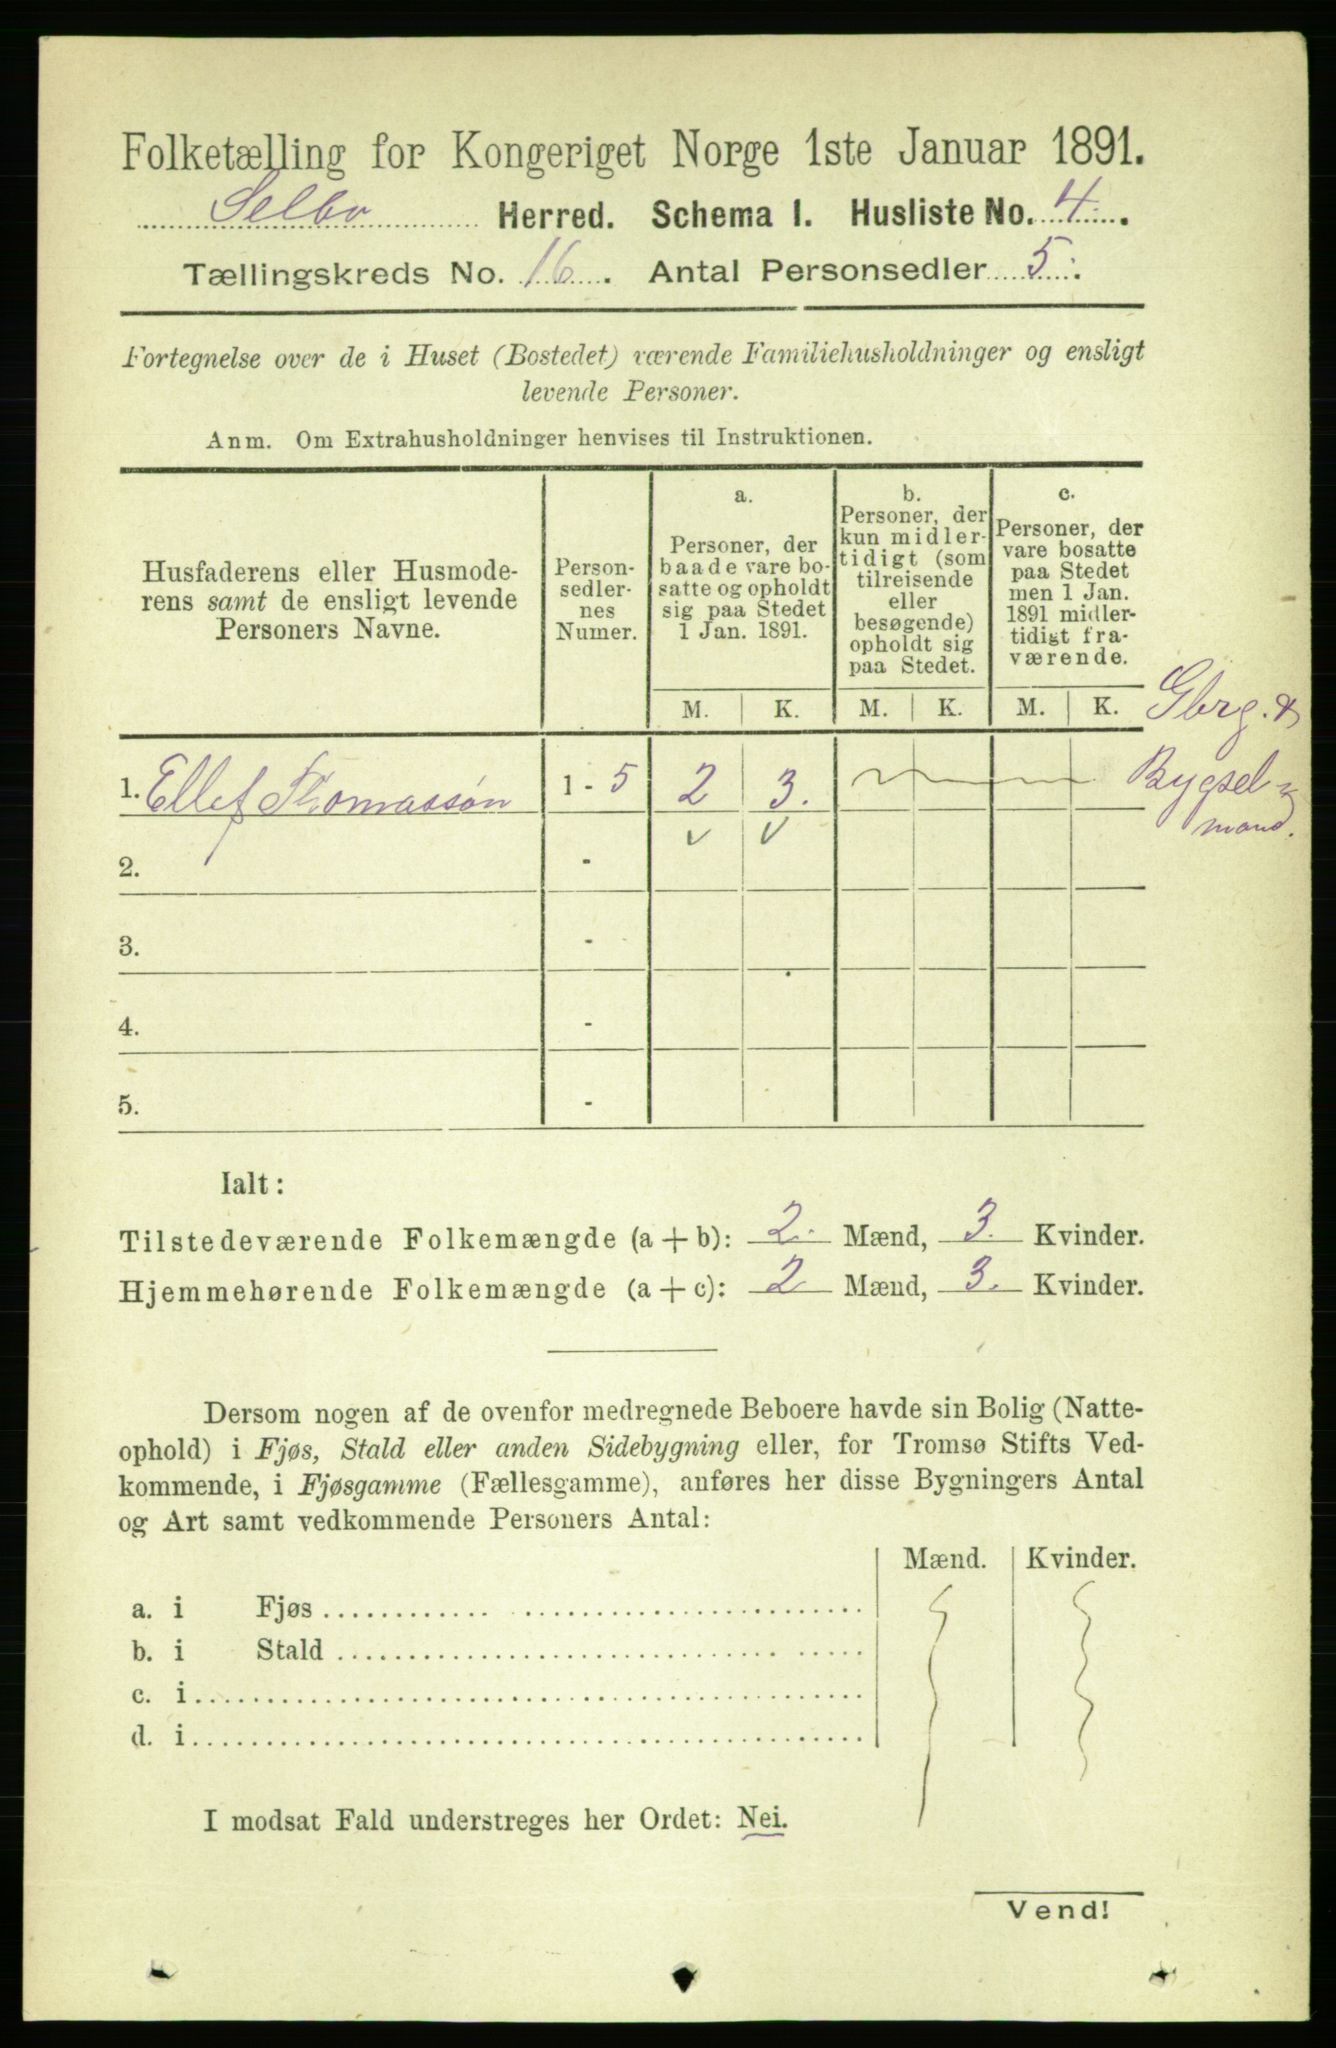 Folketælling for Kongeriget Norge 1ste Januar 1891.
Selbo Herred. Schema 1. Husliste No. 4.
Tællingskreds No. 16. Antal Personsedler 5.
Fortegnelse over de i Huset (Bostedet) værende Familiehusholdninger og ensligt
levende Personer.
Anm. Om Extrahusholdninger henvises til Instruktionen.
Husfaderens eller Husmode-
rens samt de ensligt levende
Personers Navne.
Person-
sedler-
nes
Numer.
a.
Personer, der
baade vare bo-
satte og opholdt
sig paa Stedet
1 Jan. 1891.
b.
Personer, der
kun midler-
tidigt (som
tilreisende
eller
besøgende)
opholdt sig
paa Stedet.
c.
Personer, der
vare bosatte
paa Stedet
men 1 Jan.
1891 midler-
tidigt fra-
værende.
M. K. M. K. M. K.
Gbrg. &
1. Ellef Thomassøn 1 - 5 2 3. Bygsel
mand.
2. -
3. -
4. -
5. -
Ialt:
Tilstedeværende Folkemængde (a + b): 2. Mænd, 3. Kvinder.
Hjemmehørende Folkemængde (a + c): 2 Mænd, 3. Kvinder.
Dersom nogen af de ovenfor medregnede Beboere havde sin Bolig (Natte-
ophold) i Fjøs, Stald eller anden Sidebygning eller, for Tromsø Stifts Ved-
kommende, i Fjøsgamme (Fællesgamme), anføres her disse Bygningers Antal
og Art samt vedkommende Personers Antal:
Mænd. Kvinder.
a. i Fjøs
b. i Stald
c. i
d. i
I modsat Fald understreges her Ordet: Nei.
Vend!